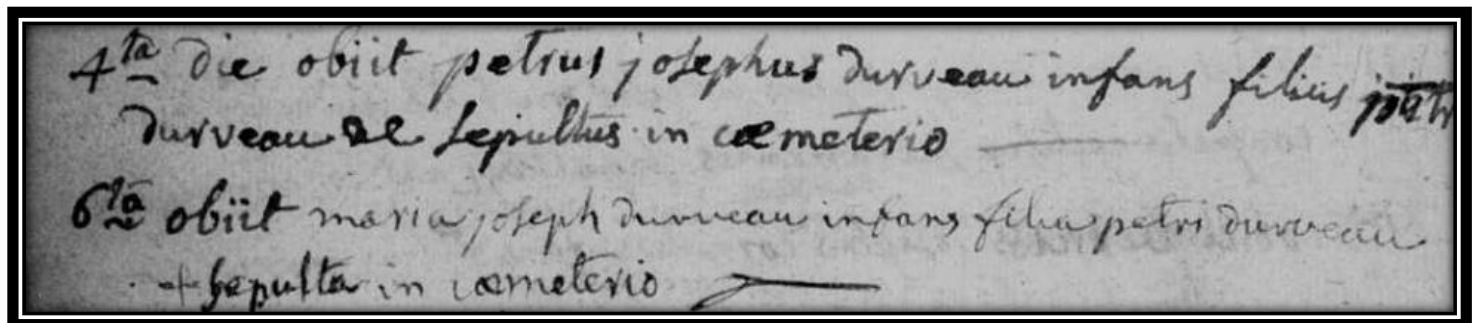 4ta die obiit petrus josephus durveau infans filius
durveau et sepultus in cæmeterio
6ta obiit maria joseph durveau infans filia petri durveau
+ sepulta in cæmeterio